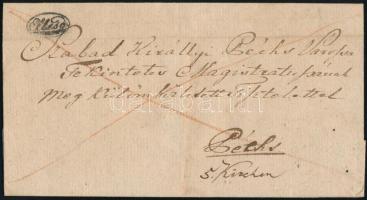 Szabad Királlyi Péchs Várossa
Tekintetes Magistratussának
meg külömböztetett tisztelettel
Péchs
5. Kirchen